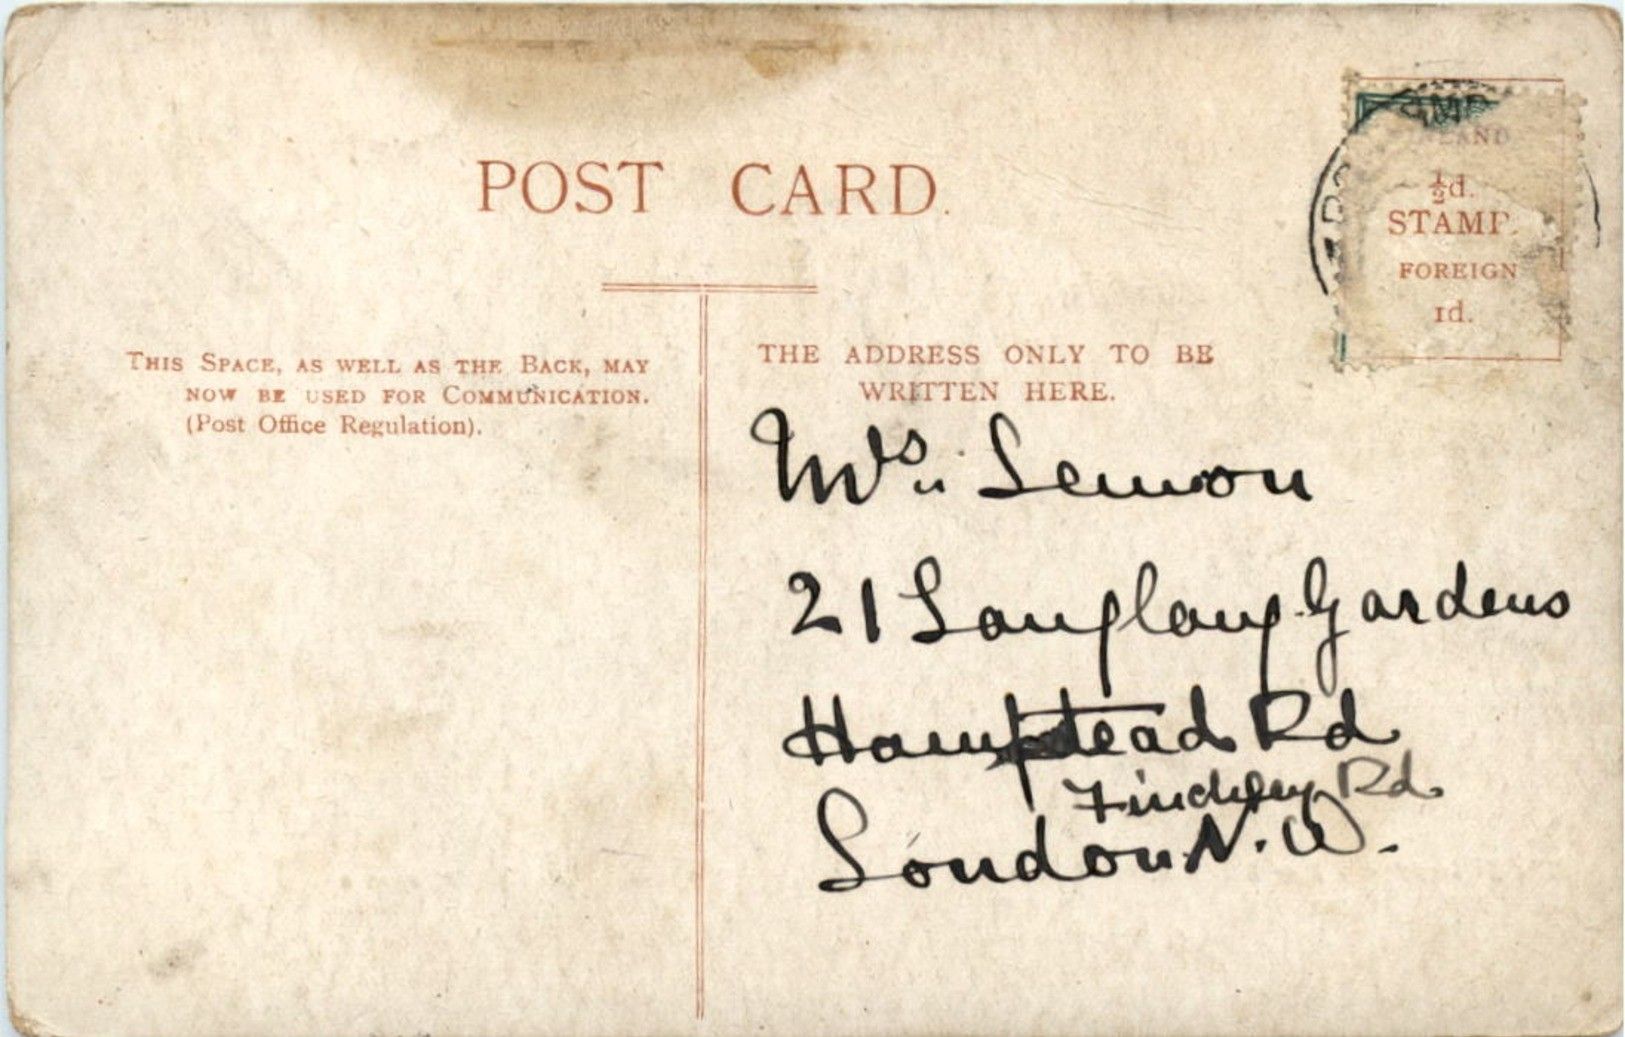 POST CARD.
INLAND
½d.
STAMP.
FOREIGN
1d.
THIS SPACE, AS WELL AS THE BACK, MAY
NOW BE USED FOR COMMUNICATION.
(Post Office Regulation).
THE ADDRESS ONLY TO BE
WRITTEN HERE.
Mrs. Lemon
21 Gardens
Hampstead Rd
Finchley Rd.
London N.W.